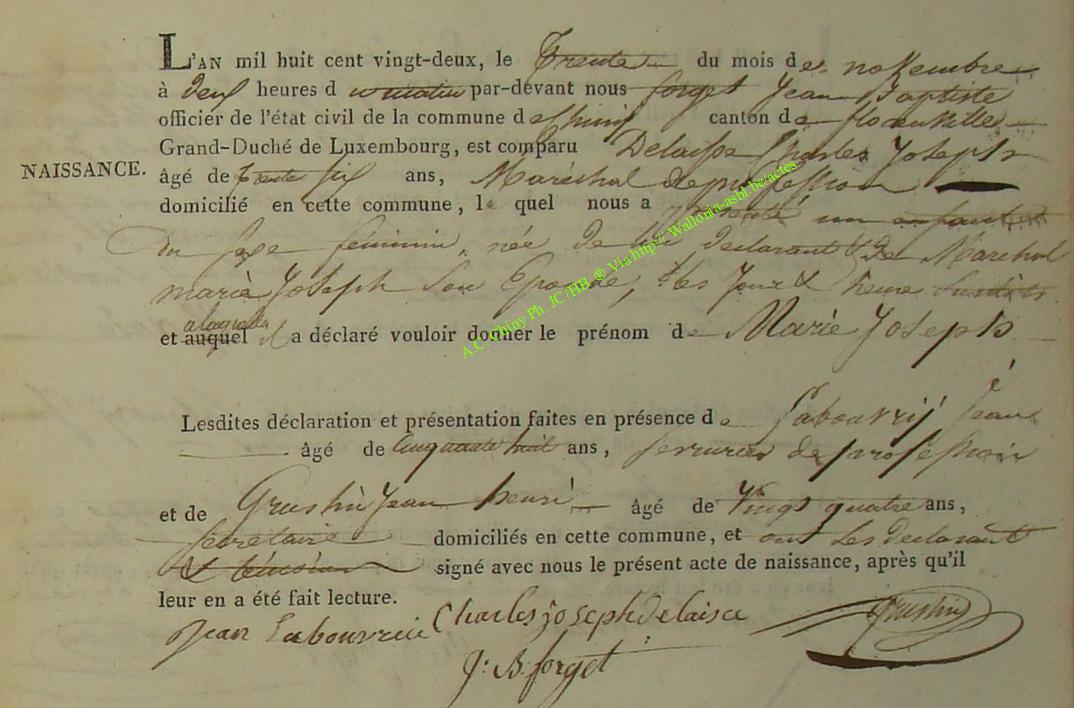 L'AN mil huit cent vingt-deux, le trente du mois de novembre
à deux heures d u matin par-devant nous forget Jean Baptiste
officier de l'état civil de la commune de Chiny canton de florenville
Grand-Duché de Luxembourg, est comparu Delaisse Charles Joseph
NAISSANCE.
âgé de trente six ans, Maréchal de profession
domicilié en cette commune, le quel nous a présenté un enfant
du sexe féminin, née de lui declarant & de Marechal
marie Joseph son Epouse, les jour & heure susdits
et auquel a laquelle il a déclaré vouloir donner le prénom de Marie Joseph
Lesdites déclaration et présentation faites en présence de Labouvrij Jean
âgé de cinquante huit ans, serrurier de profession
et de Grustin Jean henri âgé de vingt quatre ans,
secretaire domiciliés en cette commune, et ont les declarant
& témoins signé avec nous le présent acte de naissance, après qu'il
leur en a été fait lecture.
Jean Labouvrie Charles joseph Delaisse Grustin
J. B. forget
A.C. Chiny Ph. JC /HB ® Via http// Wallonia-asbl.be/actes